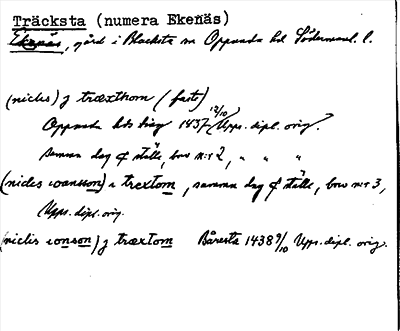 Träcksta (numera Ekenäs)
Ekenäs, gård i Blacksta sn Oppunda hd Södermanl. l.
(niclis) j træxthom (fasti)
Oppunda hds ting 1437 12/10 Upps. dipl. orig.
samma dag & ställe, brev nr 2, " " "
(niclis ioansson) i trextom, samma dag & ställe, brev nr 3,
Upps. dipl. orig.
(niclis ionson) j træxtom Båresta 1438 9/10 Upps. dipl. orig.